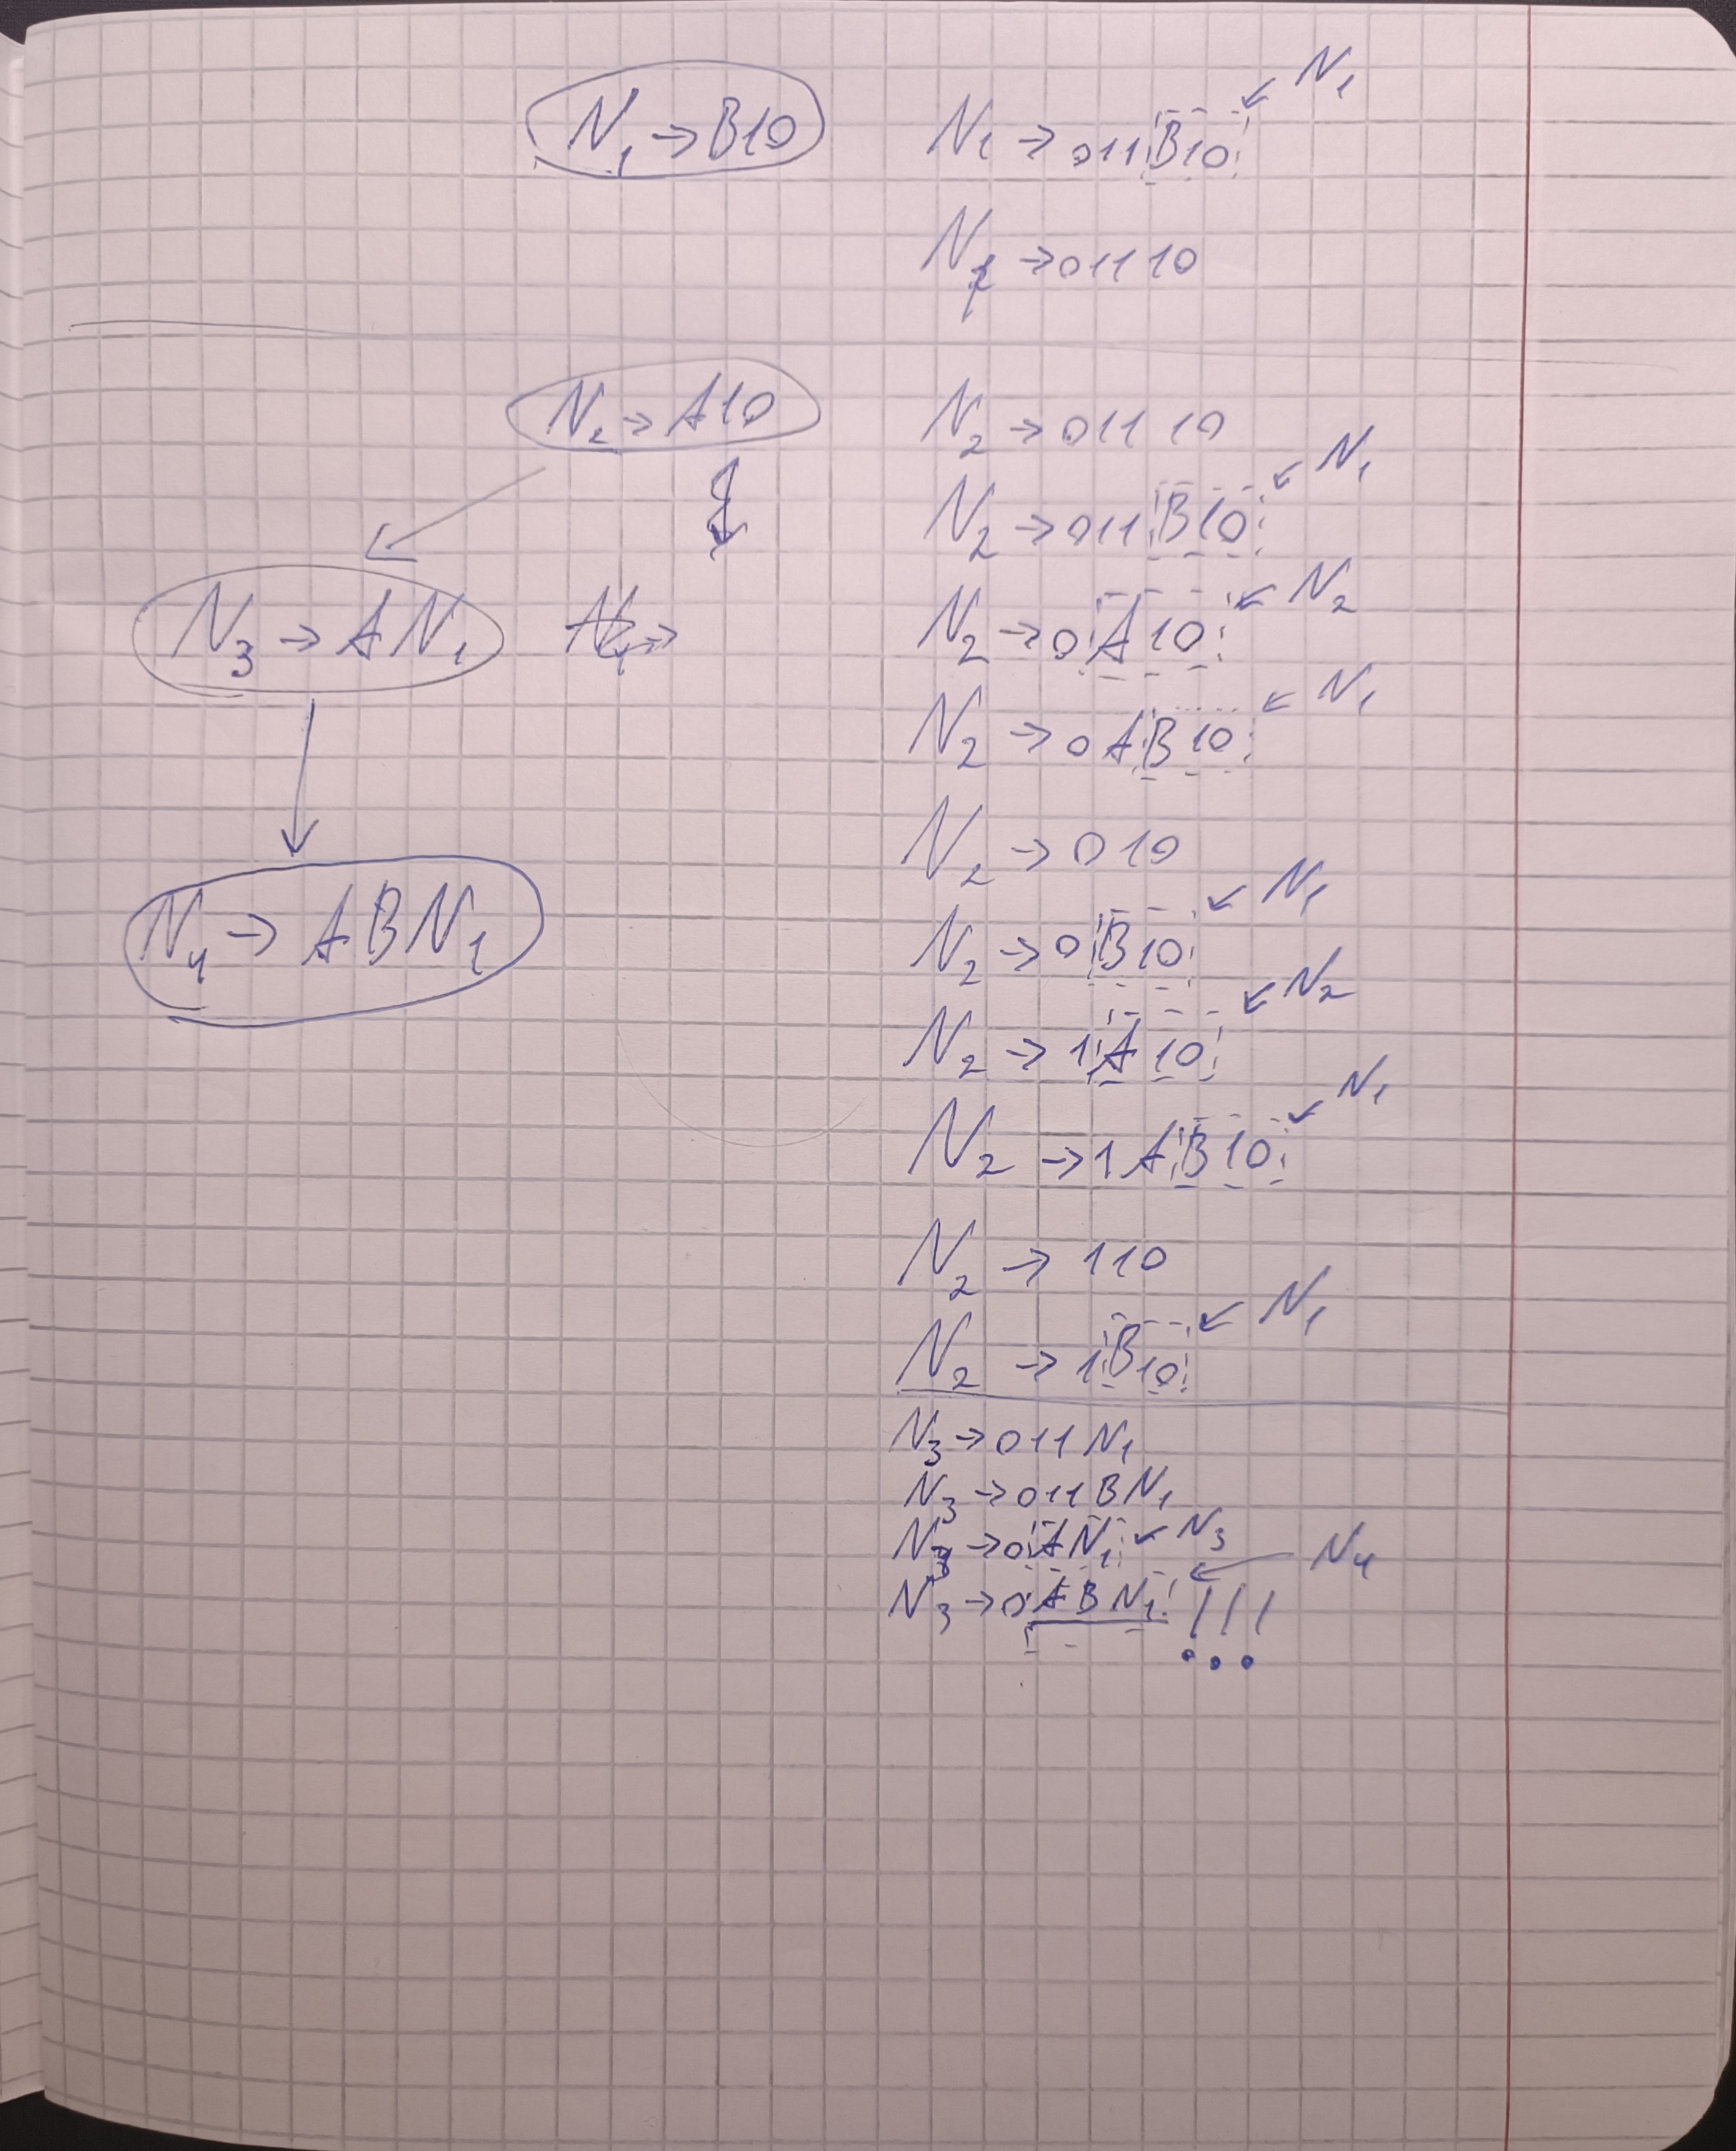 N₁ → B10
N₁ → 011B10 ↙ N₁
N₁ → 01110
N₂ → A10
N₂ → 01110
N₂ → 011B10 ↙ N₁
N₃ → AN₁
N₂ → 0A10 ↙ N₂
N₂ → 0AB10 ↙ N₁
N₂ → 010
N₄ → ABN₁
N₂ → 0B10 ↙ N₁
N₂ → 1A10 ↙ N₂
N₂ → 1AB10 ↙ N₁
N₂ → 110
N₂ → 1B10 ↙ N₁
N₃ → 011N₁
N₃ → 011BN₁
N₃ → 0AN₁ ↙ N₃
N₃ → 0ABN₁ ← N₄ !!!